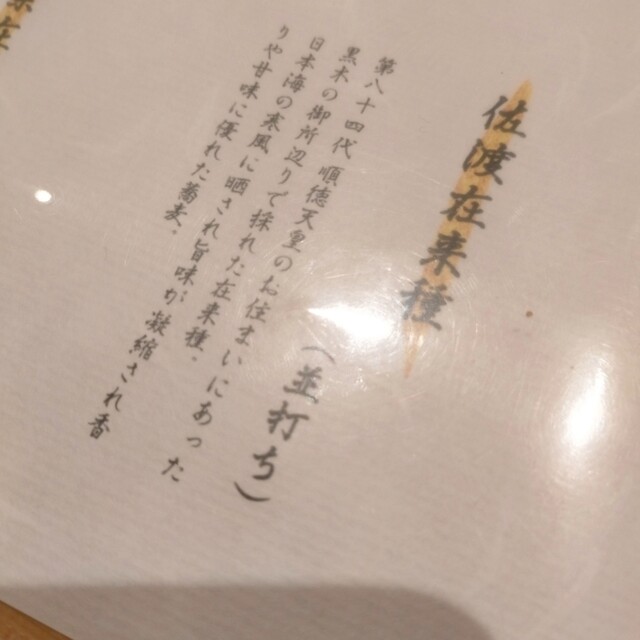 佐渡空海
(並打ち)
第八十四代 順徳天皇のお住まいにあった
黒木の御所辺りで採れたお蕎麦。
日本海の寒風に晒され旨味が凝縮され香
りや甘味に優れた蕎麦。